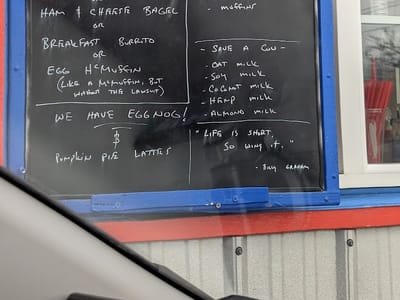 OR
HAM & CHEESE BAGEL
OR
BREAKFAST BURRITO
OR
EGG McMUFFIN
(LIKE A McMUFFIN, BUT
WITHOUT THE LAWSUIT)
WE HAVE EGGNOG!
&
PUMPKIN PIE LATTES
- MUFFINS
- SAVE A COW -
- OAT MILK
- SOY MILK
- COCONUT MILK
- HEMP MILK
- ALMOND MILK
"LIFE IS SHORT,
SO WING IT,"
- BUY